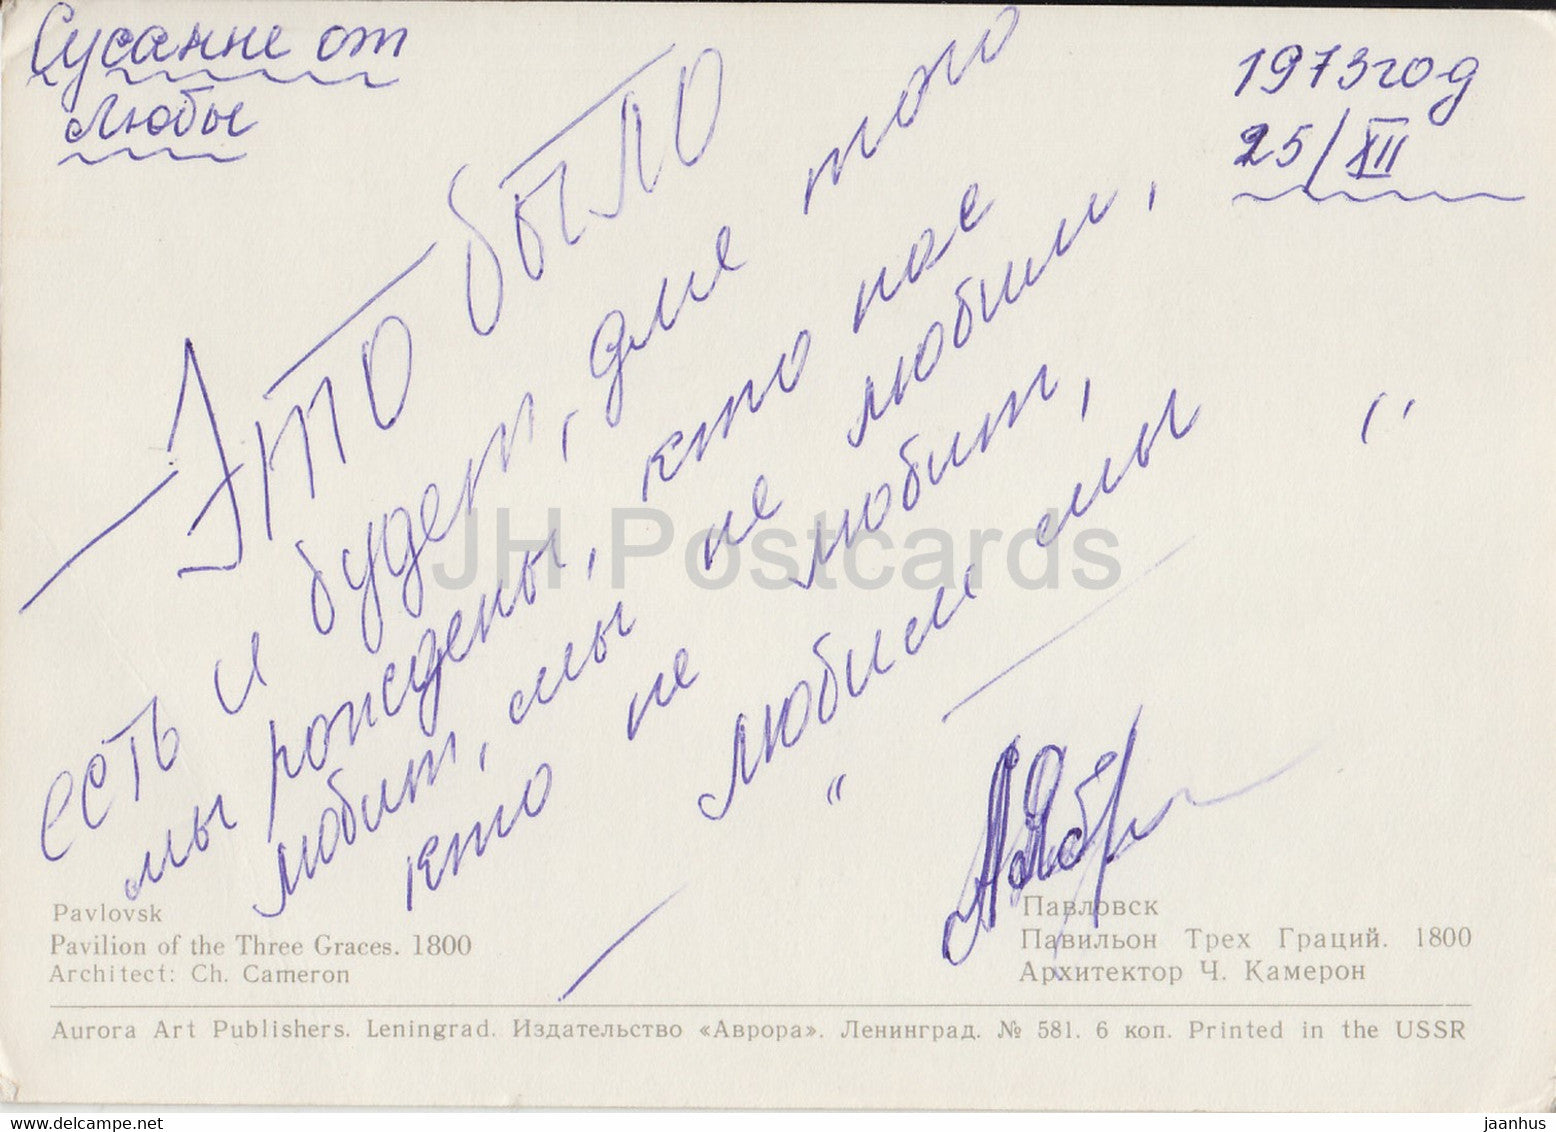 Сусанне от
Любы
1973 год
25/XII
Это было
есть и будет, для того
мы рождены, кто нас
любит, мы не любили,
кто не любит,
любим мы
JH Postcards
Pavlovsk
Pavilion of the Three Graces. 1800
Architect: Ch. Cameron
Павловск
Павильон Трех Граций. 1800
Архитектор Ч. Камерон
Aurora Art Publishers. Leningrad. Издательство «Аврора». Ленинград. № 581. 6 коп. Printed in the USSR
www.delcampe.net
jaanhus